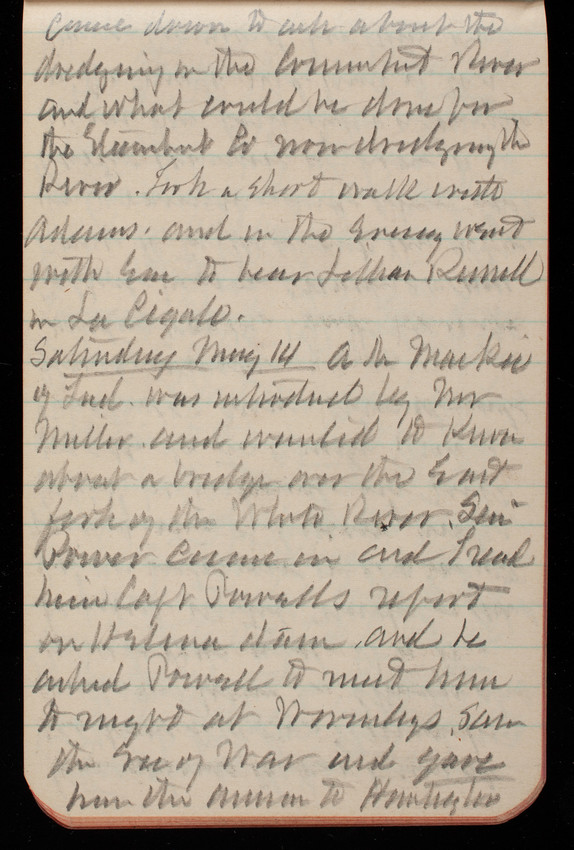 came down to ask about the
dredging on the Connecticut River
and what could be done for
the Steamboat Co now dredging the
River. Took a short walk with
Adams. and in the Evening went
with Gen to hear Lillian Russell
in La Cigale.
Saturday May 14 A Mr Mackie
of Ind. was introduced by Mr
Miller. and wanted to know
about a bridge over the East
fork of the White River. Gen
Power came in and I read
him Capt Powells report
on Helena dam, and he
asked Powell to meet him
to night at Wormleys. Saw
the Sec of War and gave
him the answer to Huntington